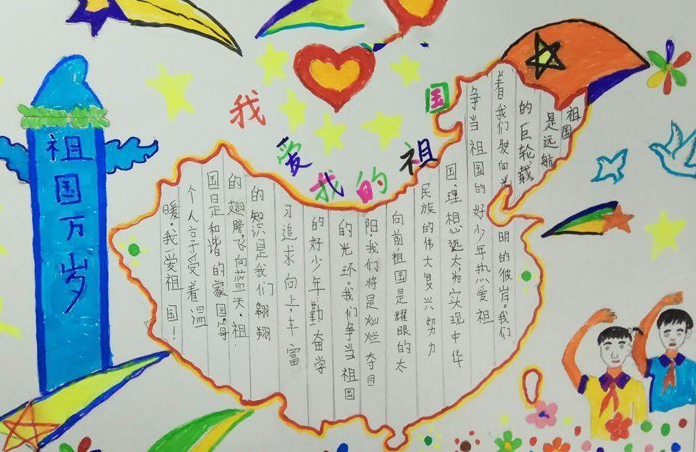 祖国万岁
我爱我的祖国
祖国
是远航
的巨轮载
着我们驶向光
明的彼岸。我们
争当祖国的好少年热爱祖
国理想远大为实现中华
民族的伟大复兴努力
向前祖国是耀眼的太
阳。我们将是灿烂夺目
的光环。我们争当祖国
的好少年勤奋学
习追求向上,丰富
的知识是我们翱翔
的翅膀,飞向蓝天。祖
国是和谐的家国,每
个人享受着温
暖。我爱祖国!